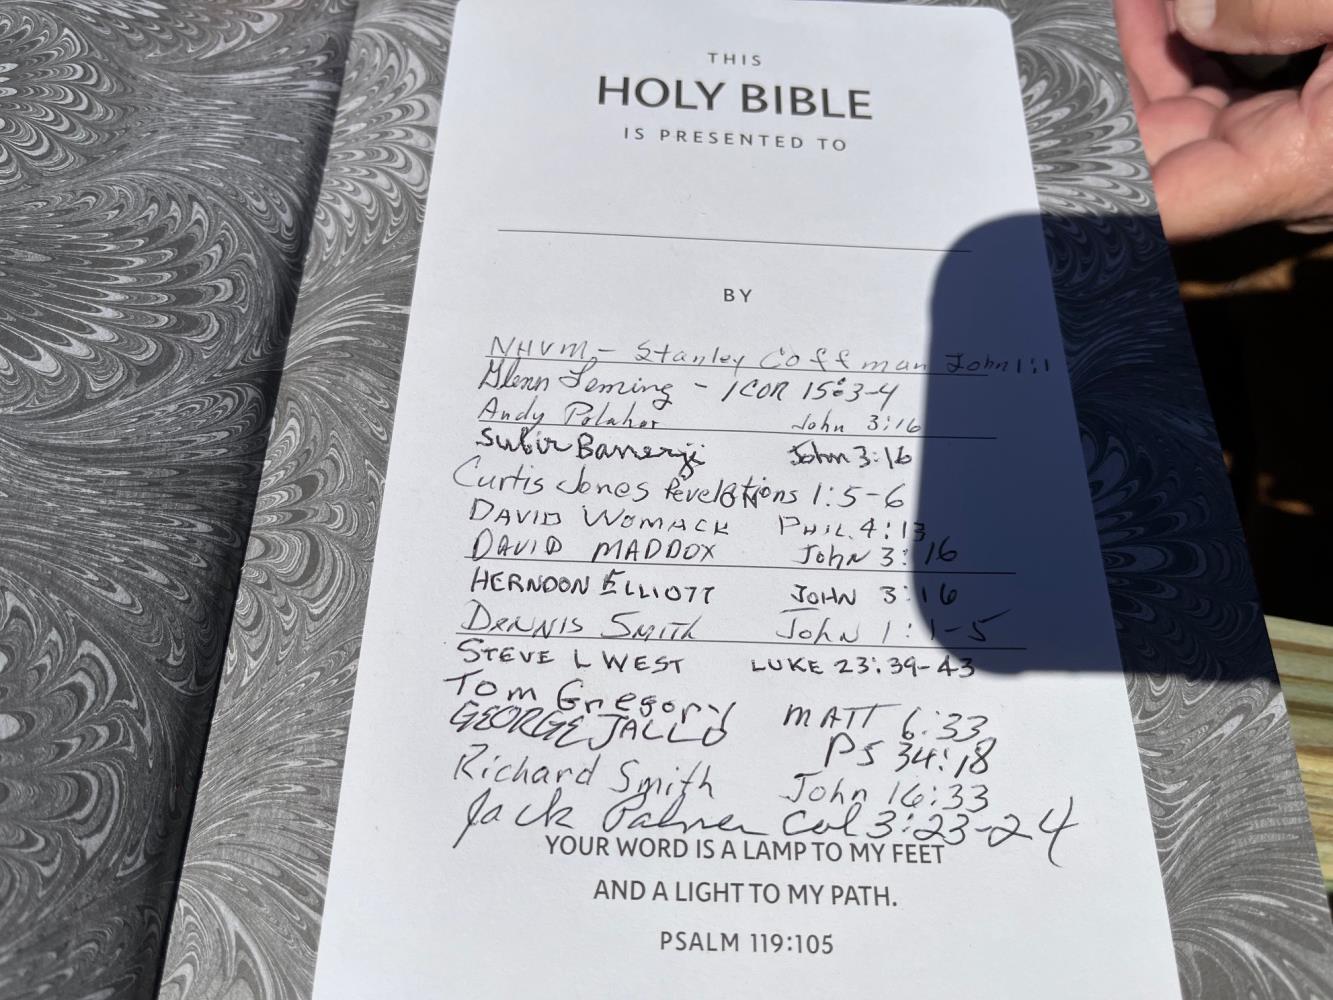 THIS
HOLY BIBLE
IS PRESENTED TO
BY
NHVM - Stanley Coffman John 1:1
Glenn Leming - 1 COR 15:3-4
Andy Polaher John 3:16
Subir Banerji John 3:16
Curtis Jones Revelations 1:5-6
DAVID WOMACK PHIL. 4:13
DAVID MADDOX John 3:16
HERNDON ELLIOTT JOHN 3:16
DENNIS SMITH John 1:1-5
STEVE L WEST LUKE 23:39-43
Tom Gregory MATT 6:33
GEORGE JALLO PS 34:18
Richard Smith John 16:33
Jack Palmer Col 3:23-24
YOUR WORD IS A LAMP TO MY FEET
AND A LIGHT TO MY PATH.
PSALM 119:105